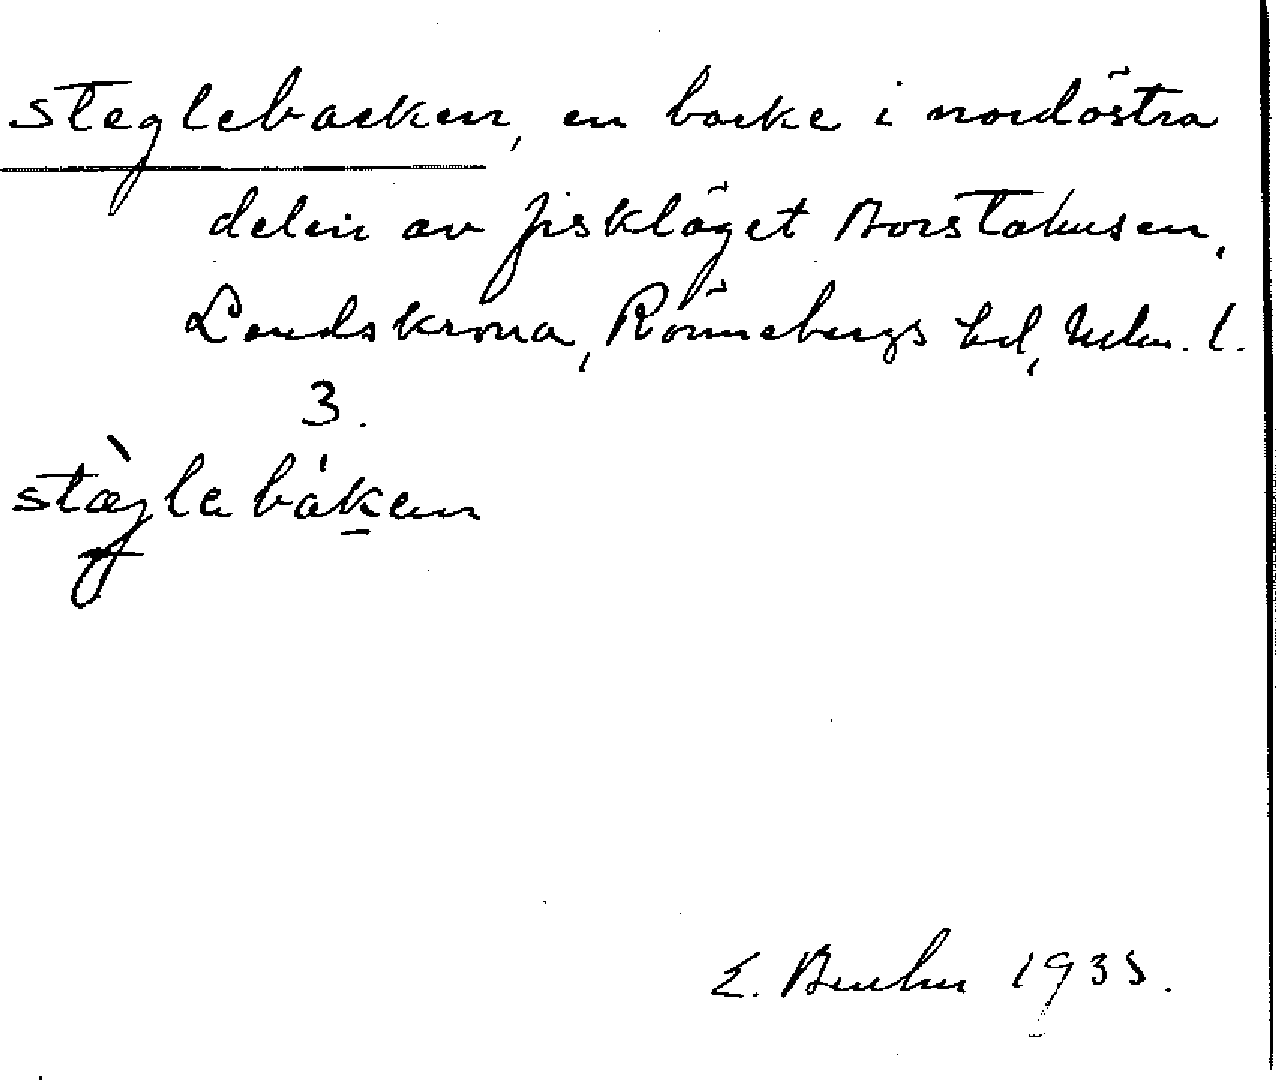 Steglebacken, en backe i nordöstra
delen av fiskläget Borstahusen,
Landskrona, Rönnebergs hd, Mlm. l.
3.
stæglebakan
E. Bruhn 1935.